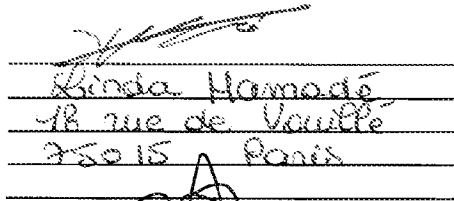 Linda Hamadé
rue de Vouillé
75015 Paris